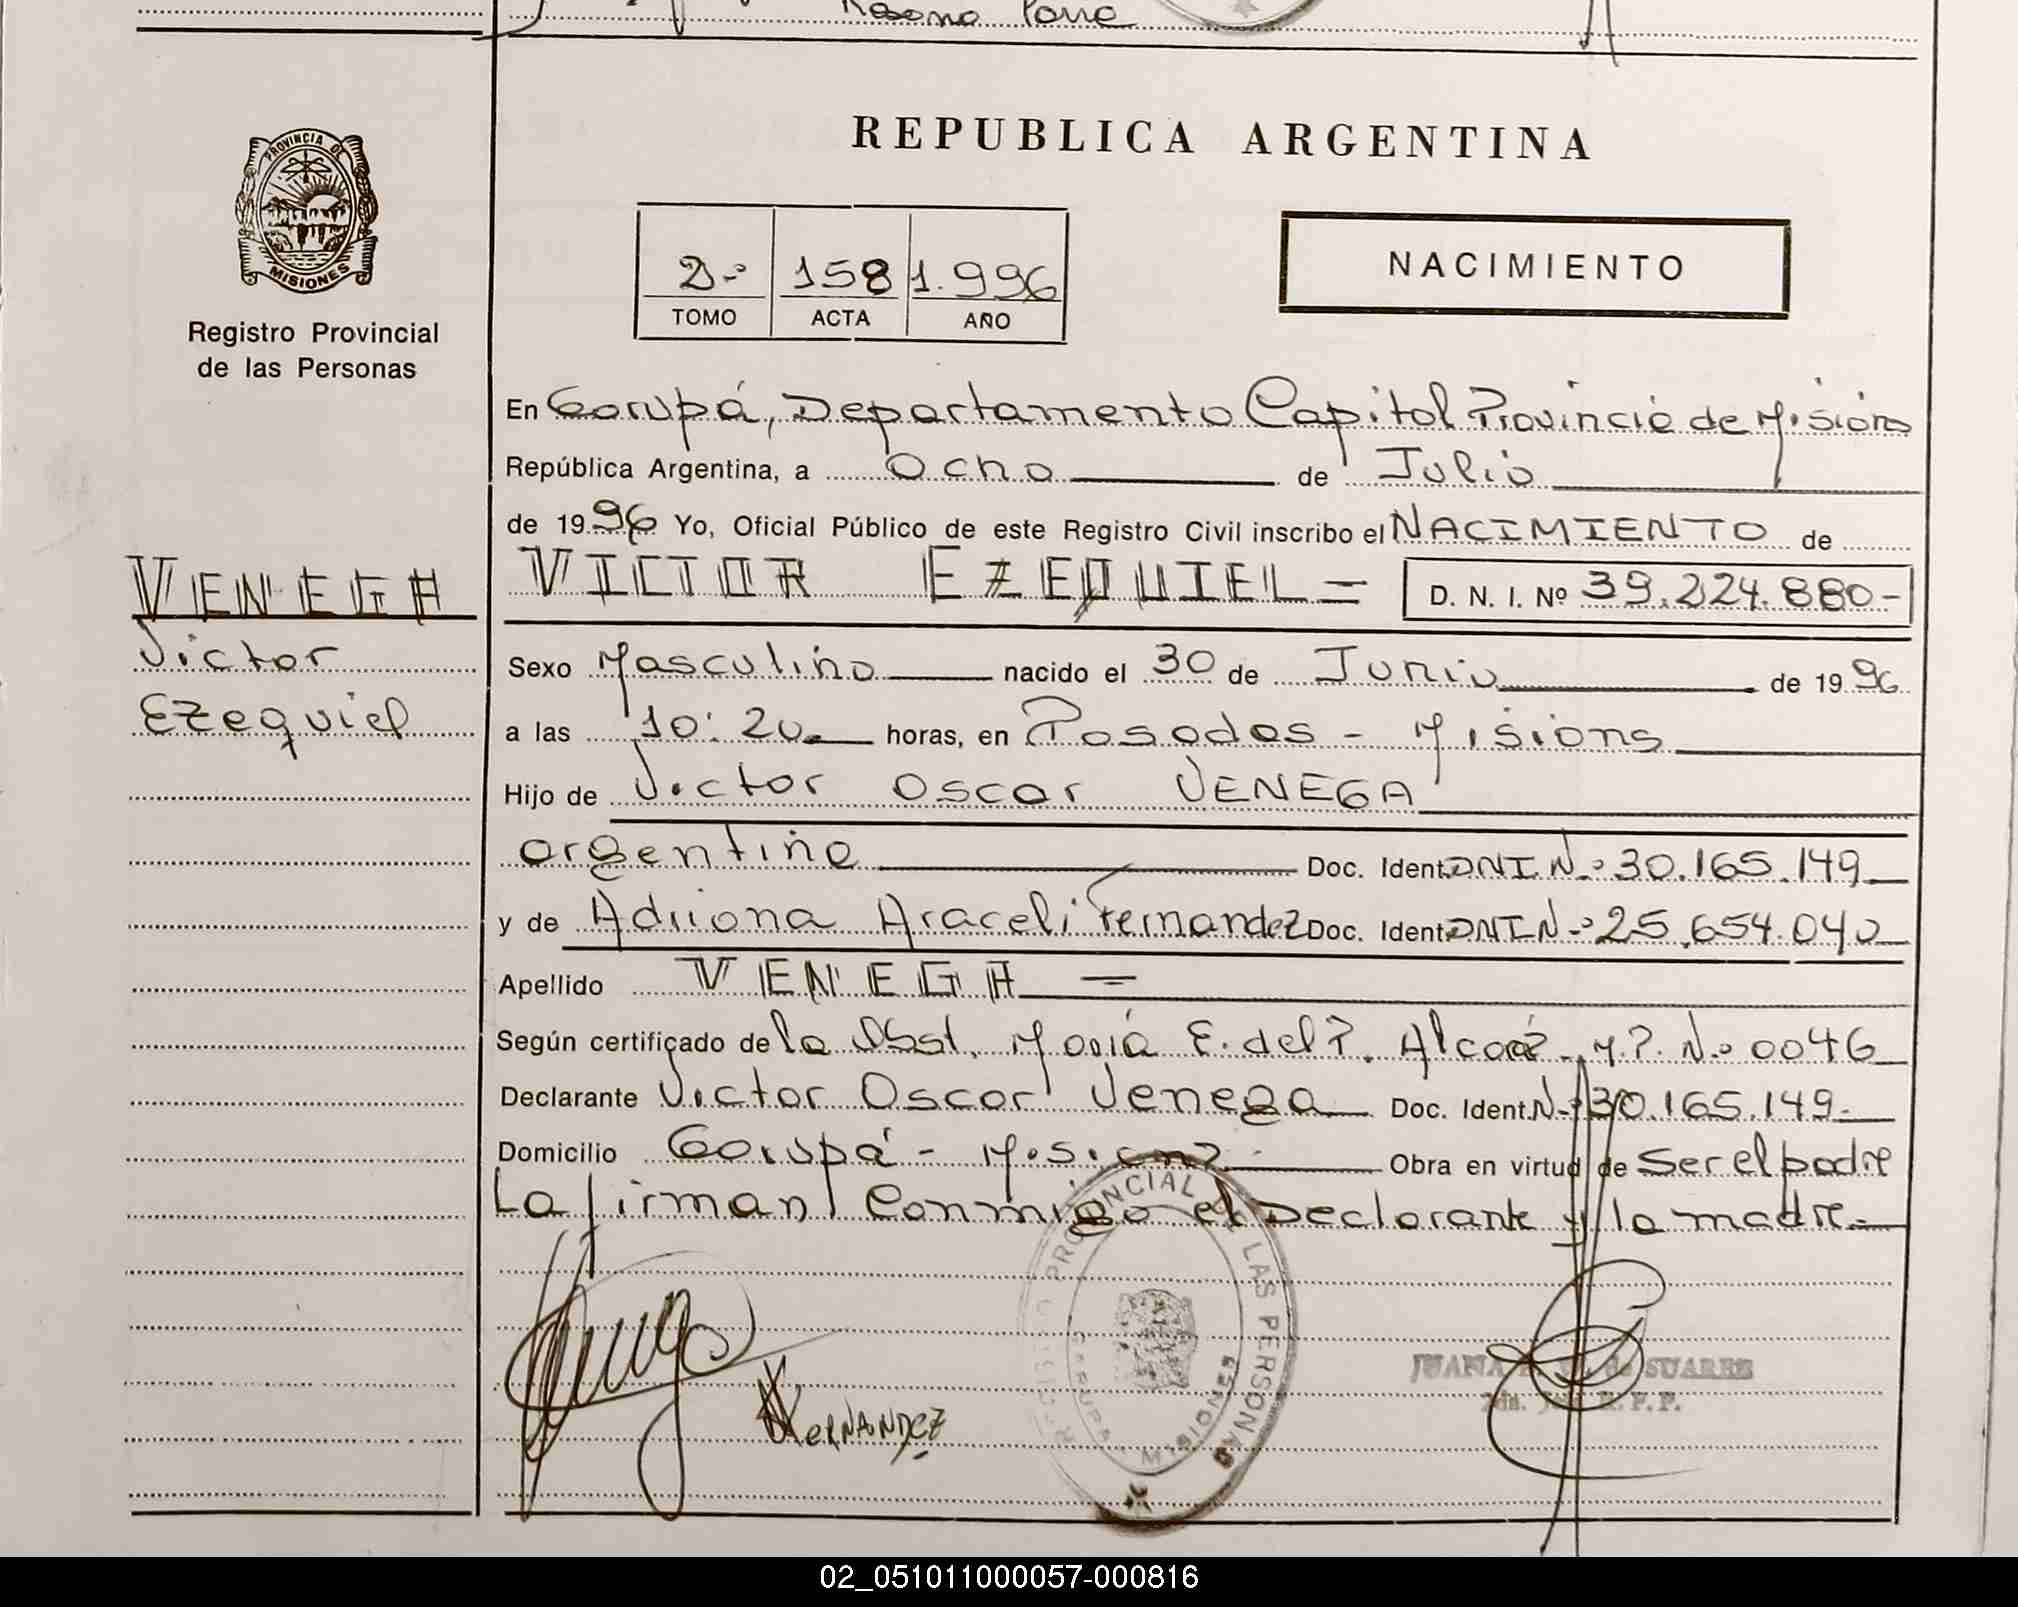 PROVINCIA DE
MISIONES
Registro Provincial
de las Personas
REPUBLICA ARGENTINA
2-º 158 1.996
TOMO ACTA AÑO
NACIMIENTO
En Garupá, Departamento Capital Provincia de Misiones
República Argentina, a Ocho de Julio
de 1996 Yo, Oficial Público de este Registro Civil inscribo el NACIMIENTO de
VENEGA
Victor
Ezequiel
VICTOR EZEQUIEL = D. N. I. Nº 39.224.880-
Sexo Masculino nacido el 30 de Junio de 1996
a las 10:20 horas, en Posadas - Misiones
Hijo de Victor Oscar VENEGA
argentino Doc. Ident. DNI Nº 30.165.149
y de Adriana Araceli Fernandez Doc. Ident. DNI Nº 25.654.040
Apellido VENEGA =
Según certificado de la Obst. María E. del P. M.P. Nº 0046
Declarante Victor Oscar Venega Doc. Ident. Nº 30.165.149-
Domicilio Garupá - Misiones - Obra en virtud de Ser el padre
La firman Conmigo el Declarante y la madre.-
PROVINCIAL LAS PERSONAS
MISIONES
FERNANDEZ
JUANA de SUAREZ
02_051011000057-000816